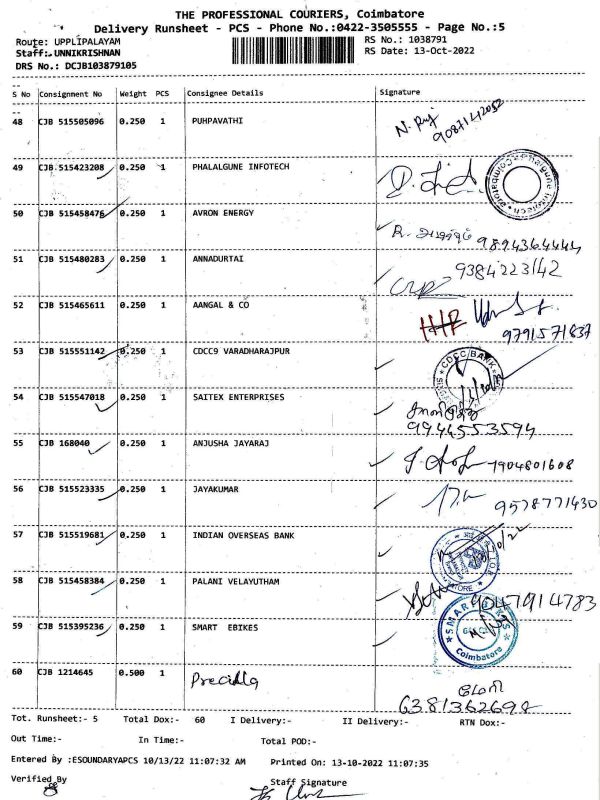 THE PROFESSIONAL COURIERS, Coimbatore
Delivery Runsheet - PCS - Phone No.:0422-3505555 - Page No.:5
Route: UPPLIPALAYAM RS No.: 1038791
Staff: UNNIKRISHNAN RS Date: 13-Oct-2022
DRS No.: DCJB103879105
S No Consignment No Weight PCS Consignee Details Signature
48 CJB 515505096 0.250 1 PUHPAVATHI
9087142052
49 CJB 515423208 0.250 1 PHALALGUNE INFOTECH
50 CJB 515458476 0.250 1 AVRON ENERGY
9894364444
51 CJB 515480283 0.250 1 ANNADURTAI 9384223142
52 CJB 515465611 0.250 1 AANGAL & CO
9791571837
53 CJB 515551142 0.250 1 CDCC9 VARADHARAJPUR CDCC BANK
54 CJB 515547018 0.250 1 SAITEX ENTERPRISES
9944553594
55 CJB 168040 0.250 1 ANJUSHA JAYARAJ 7904801608
56 CJB 515523335 0.250 1 JAYAKUMAR 9578771430
57 CJB 515519681 0.250 1 INDIAN OVERSEAS BANK
58 CJB 515458384 0.250 1 PALANI VELAYUTHAM 9047914783
59 CJB 515395236 0.250 1 SMART EBIKES Coimbatore
60 CJB 1214645 0.500 1 Precilla
6381362698
Tot. Runsheet:- 5 Total Dox:- 60 I Delivery:- II Delivery:- RTN Dox:-
Out Time:- In Time:- Total POD:-
Entered By :ESOUNDARYAPCS 10/13/22 11:07:32 AM Printed On: 13-10-2022 11:07:35
Verified By Staff Signature